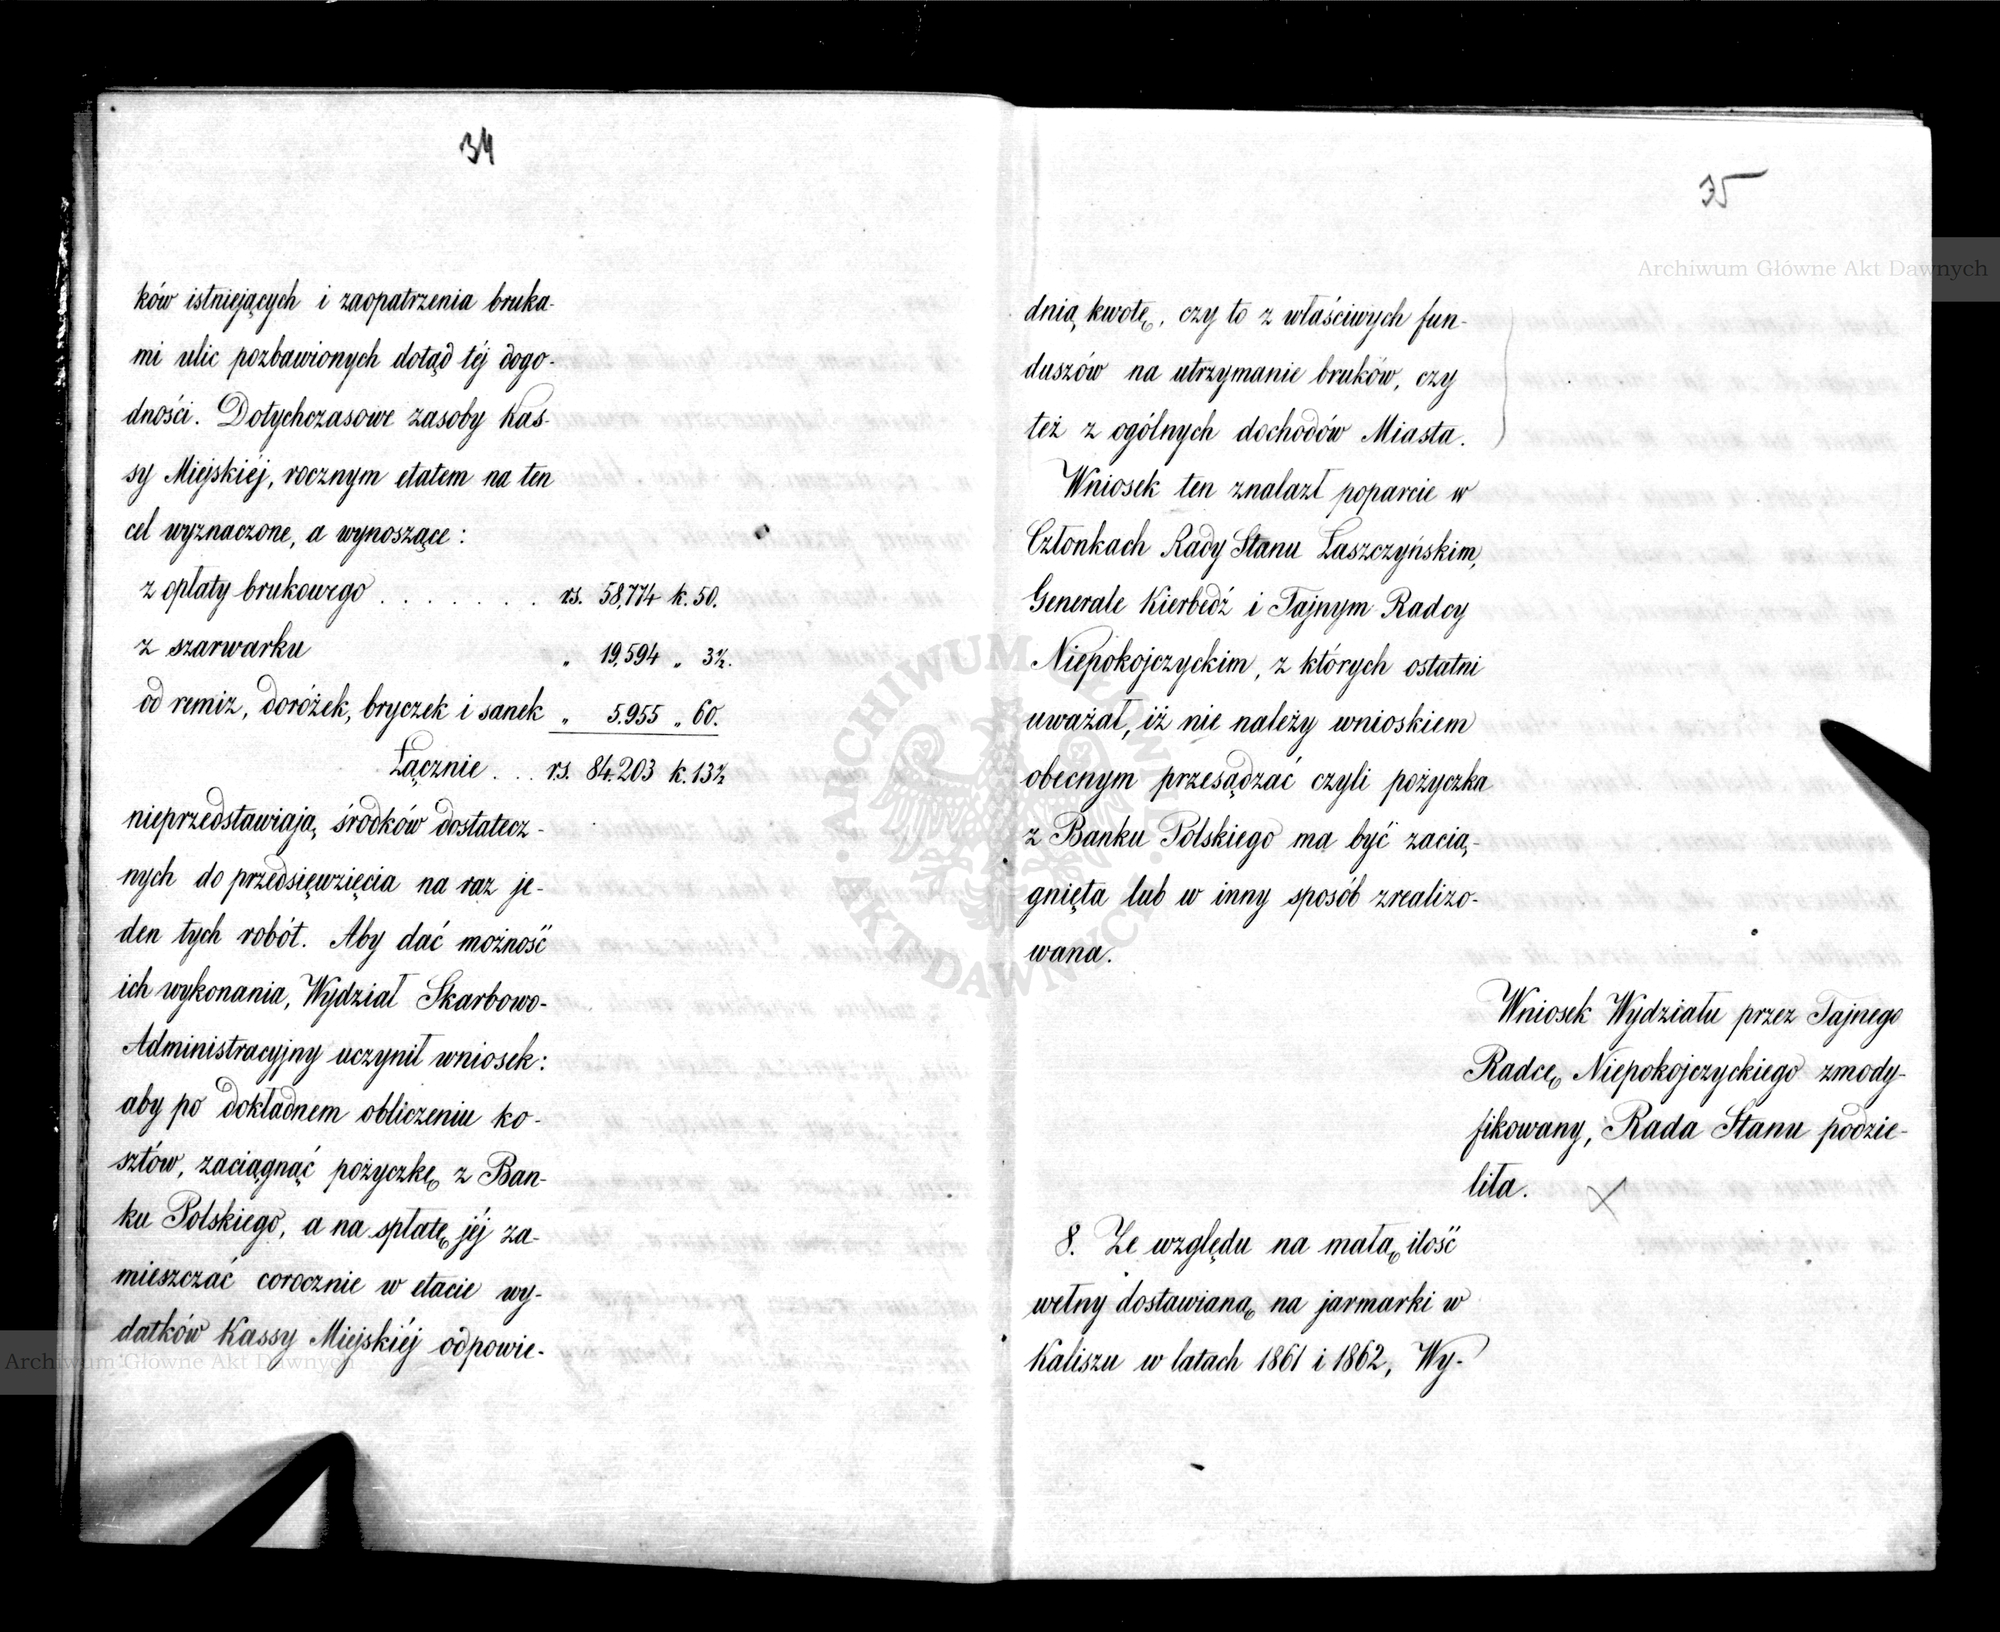 34
ków istniejących i zaopatrzenia bruka-
mi ulic pozbawionych dotąd téj dogo-
dności. Dotychczasowe zasoby Kas-
sy Miejskiéj, rocznym etatem na ten
cel wyznaczone, a wynoszące:
z opłaty brukowego . . . . . . . rs. 58,774 k. 50.
z szarwarku „ 19,594 „ 3½.
od remiz, dorożek, bryczek i sanek „ 5.955 „ 60.
Łącznie . . . rs. 84.203 k. 13½
nieprzedstawiają środków dostatecz-
nych do przedsięwzięcia na raz je-
den tych robót. Aby dać możność
ich wykonania, Wydział Skarbowo-
Administracyjny uczynił wniosek:
aby po dokładnem obliczeniu ko-
sztów, zaciągnąć pożyczkę z Ban-
ku Polskiego, a na spłatę jéj za-
mieszczać corocznie w etacie wy-
datków Kassy Miejskiéj odpowie-
35
dnią kwotę, czy to z właściwych fun-
duszów na utrzymanie bruków, czy
też z ogólnych dochodów Miasta.
Wniosek ten znalazł poparcie w
Członkach Rady Stanu Łaszczyńskim,
Generale Kierbedź i Tajnym Radcy
Niepokojczyckim, z których ostatni
uważał, iż nie należy wnioskiem
obecnym przesądzać czyli pożyczka
z Banku Polskiego ma być zacią-
gnięta lub w inny sposób zrealizo-
wana.
Wniosek Wydziału przez Tajnego
Radcę Niepokojczyckiego zmody-
fikowany, Rada Stanu podzie-
liła.
8. Ze względu na małą ilość
wełny dostawianą na jarmarki w
Kaliszu w latach 1861 i 1862, Wy-
Archiwum Główne Akt Dawnych
Archiwum Główne Akt Dawnych
ARCHIWUM GŁÓWNE AKT DAWNYCH